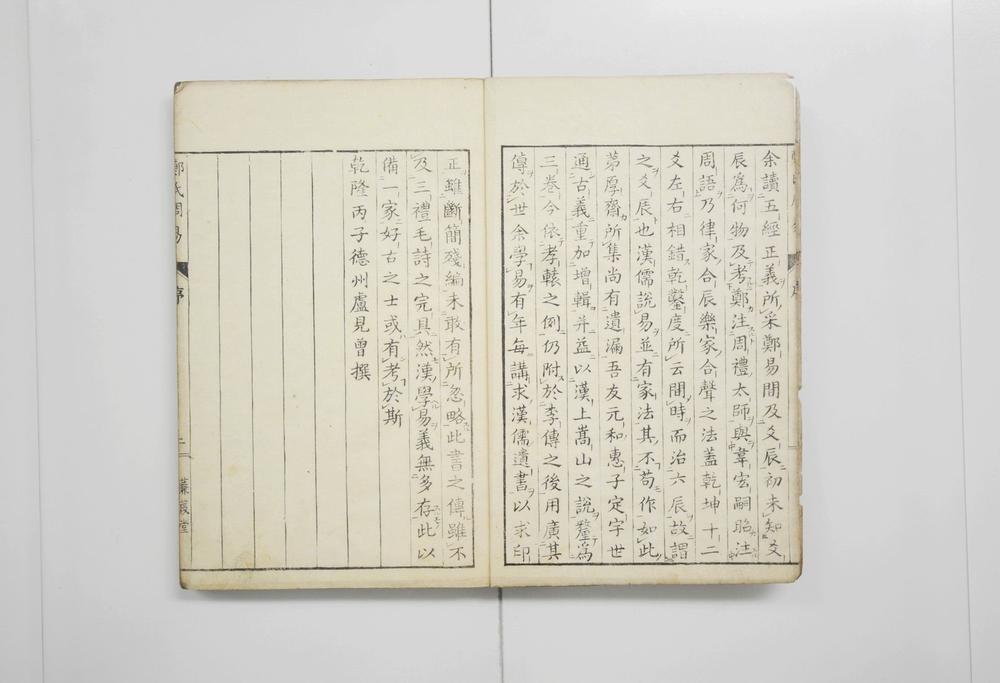 余讀五經正義所采鄭易間及爻辰初未知爻
辰爲何物及考鄭注周禮太師與韋宏嗣昭注
周語乃律家合辰樂家合聲之法蓋乾坤十二
爻左右相錯乾鑿度所云間時而治六辰故謂
之爻辰也漢儒說易並有家法其不苟作如此
第厚齋所集尚有遺漏吾友元和惠子定宇世
通古義重加增輯并益以漢上嵩山之說釐爲
三卷今依孝轅之例仍附於李傳之後用廣其
傳於世余學易有年每講求漢儒遺書以求印
正雖斷簡殘編未敢有所忽略此書之傳雖不
及三禮毛詩之完具然漢學易義無多存此以
備一家好古之士或有考於斯
乾隆丙子德州盧見曾撰
鄭氏周易
序
二